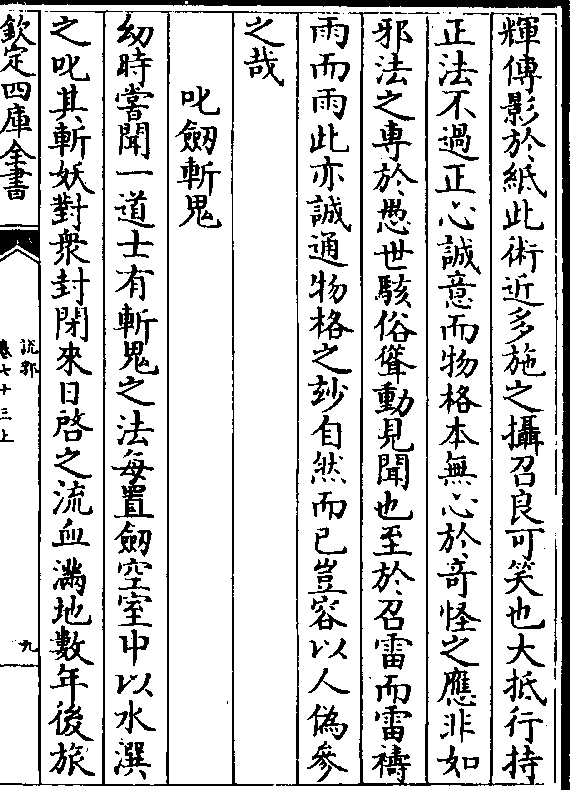 輝傳影於紙此術近多施之攝召良可笑也大抵行持
正法不過正心誠意而物格本無心於竒怪之應非如
邪法之專於愚世駭俗聳動見聞也至於召雷而雷禱
雨而雨此亦誠通物格之玅自然而已豈容以人僞參
之哉
叱劒斬鬼
幼時嘗聞一道士有斬鬼之法每置劒空室中以水潠
之叱其斬妖對衆封閉來日啓之流血滿地數年後旅
欽定四庫全書
說郛
卷七十三上
九